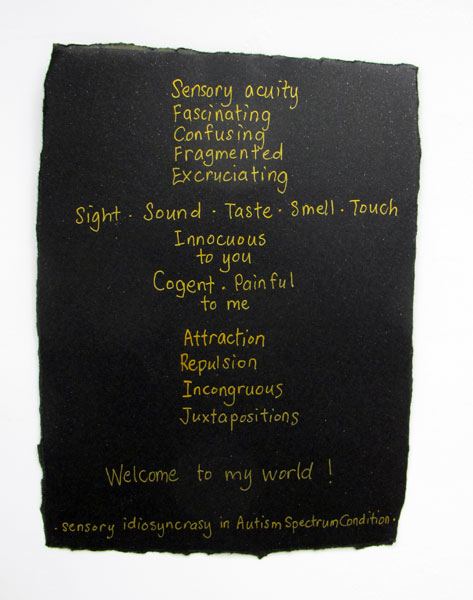 Sensory acuity
Fascinating
Confusing
Fragmented
Excruciating
Sight · Sound · Taste · Smell · Touch
Innocuous
to you
Cogent · Painful
to me
Attraction
Repulsion
Incongruous
Juxtapositions
Welcome to my world !
· sensory idiosyncrasy in Autism Spectrum Condition ·